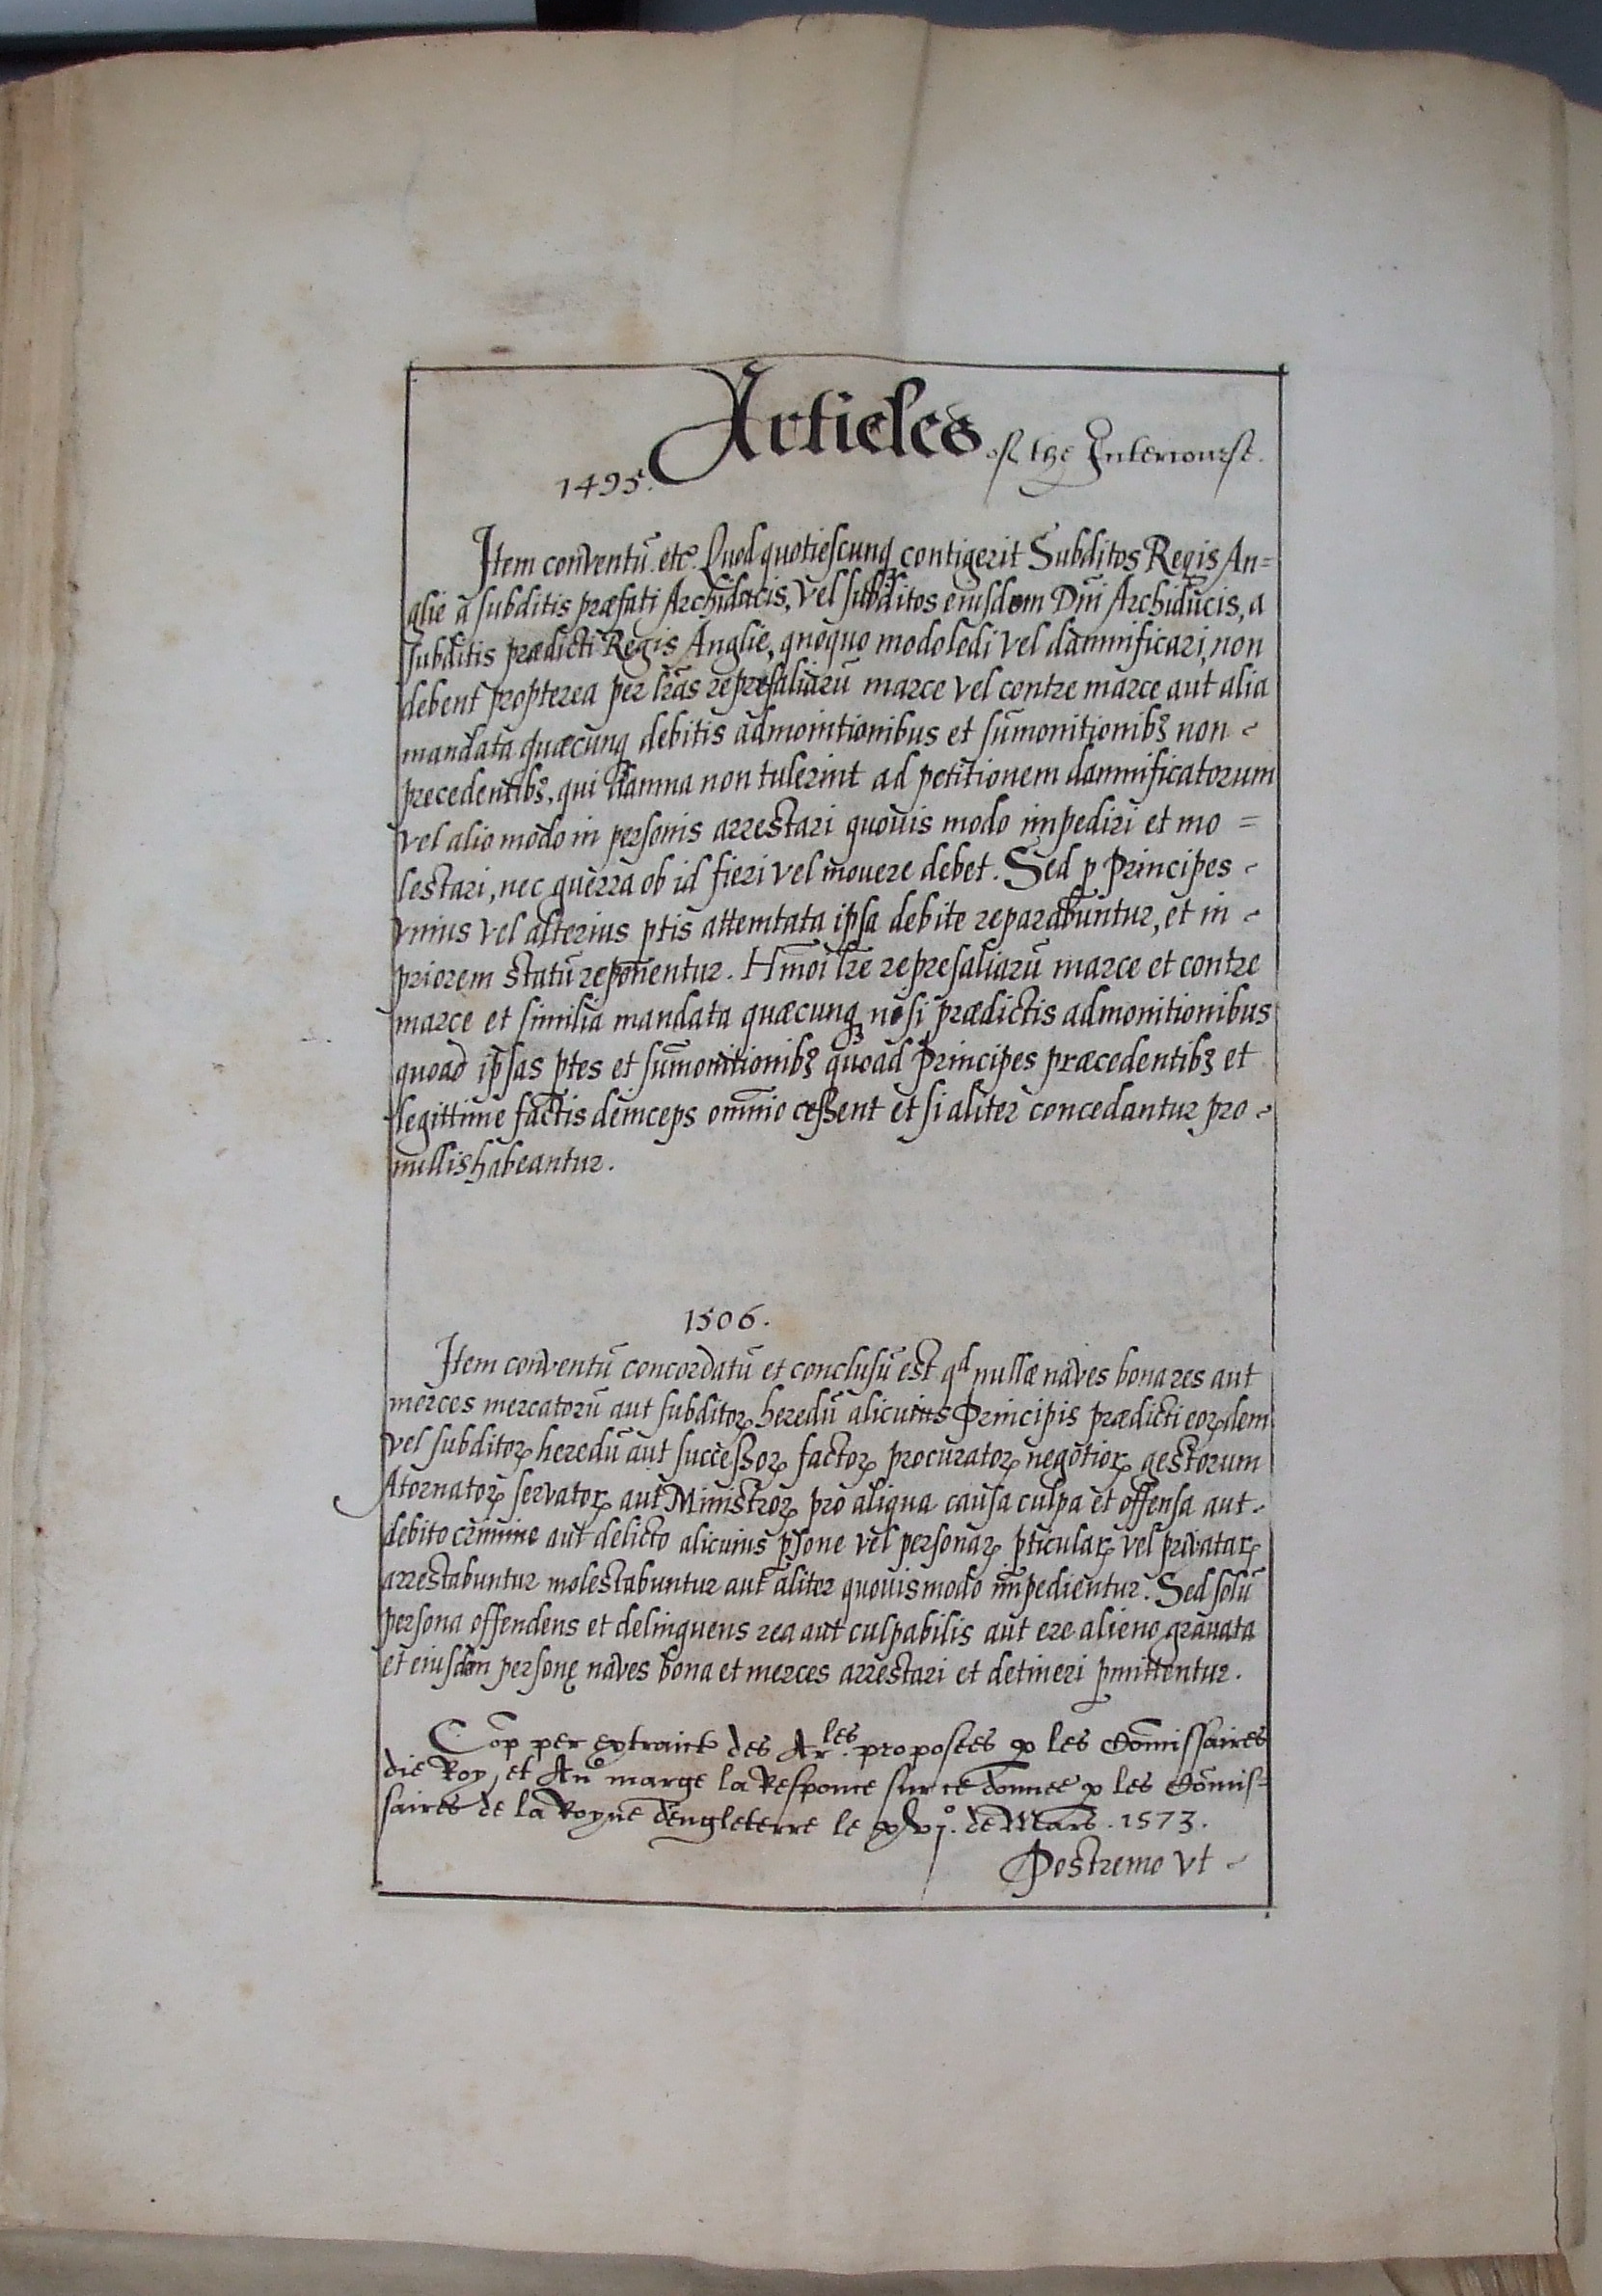 Articles of the Intercourse.
1495.
Item conventū. etc. Quod quotiescunq contigerit Subditos Regis An=
glie a subditis præfati Archiducis, vel subditos eiusdem Dn̄i Archiducis, a
subditis prædicti Regis Anglie, quoquo modo ledi vel damnificari, non
debent propterea per lr̄as represaliarū marce vel contre marce aut alia
mandata quæcunq debitis admonitionibus et sūmonitionibꝫ non -
precedentibꝫ, qui damna non tulerint ad petitionem damnificatorum
vel alio modo in personis arrestari quouis modo impediri et mo =
lestari, nec guerra ob id fieri vel mouere debet. Sed p Principes -
vnius vel alterius ptis attemtata ipsa debite reparabuntur, et in -
priorem statū reponentur. Hmōi lr̄e represaliarū marce et contre
marce et similia mandata quæcunqꝫ nisi prædictis admonitionibus
quoad ipsas ptes et sūmonitionibꝫ quoad Principes præcedentibꝫ et
legittime factis deinceps omnīo cessent et si aliter concedantur pro -
nullis habeantur.
1506.
Item conventū concordatū et conclusū est qd nullæ naves bona res aut
merces mercatorū aut subditoꝝ heredū alicuius Principis prædicti eoꝝdem
vel subditoꝝ heredū aut successoꝝ factoꝝ procuratoꝝ negotioꝝ gestorum
Atornatoꝝ servatoꝝ aut Ministroꝝ pro aliqua causa culpa et offensa aut -
debito crimine aut delicto alicuius psone vel personaꝝ pticulaꝝ vel privataꝝ
arrestabuntur molestabuntur aut aliter quouismodo impedientur. Sed solū
persona offendens et delinquens rea aut culpabilis aut ere alieno grauata
et eiusdem personę naves bona et merces arrestari et detineri pmittentur.
Cop̄ per extraict des Arles. proposees p les Com̄issaires
die Roy, et Au marge la Responce sur ce donnee p les Com̄is=
saires de la Royne d'engleterre le xvjo. de Mars. 1573.
Postremo vt -